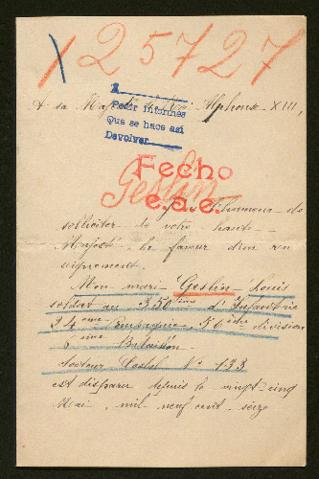 125727
A sa Majesté le Roi Alphonse XIII,
Pedir informes
Que se haca asi
Devolver
Fecho
e.a.e.
Geslin
l'honneur de
solliciter de votre haute
Majesté la faveur d'un ren
seignement.
Mon mari Geslin Louis
soldat au 350ème d'Infanterie
24ème Compagnie, 56ème division
6ème Bataillon
Secteur Postal No 133
est disparu depuis le vingt-cinq
Mai, mil neuf cent seize